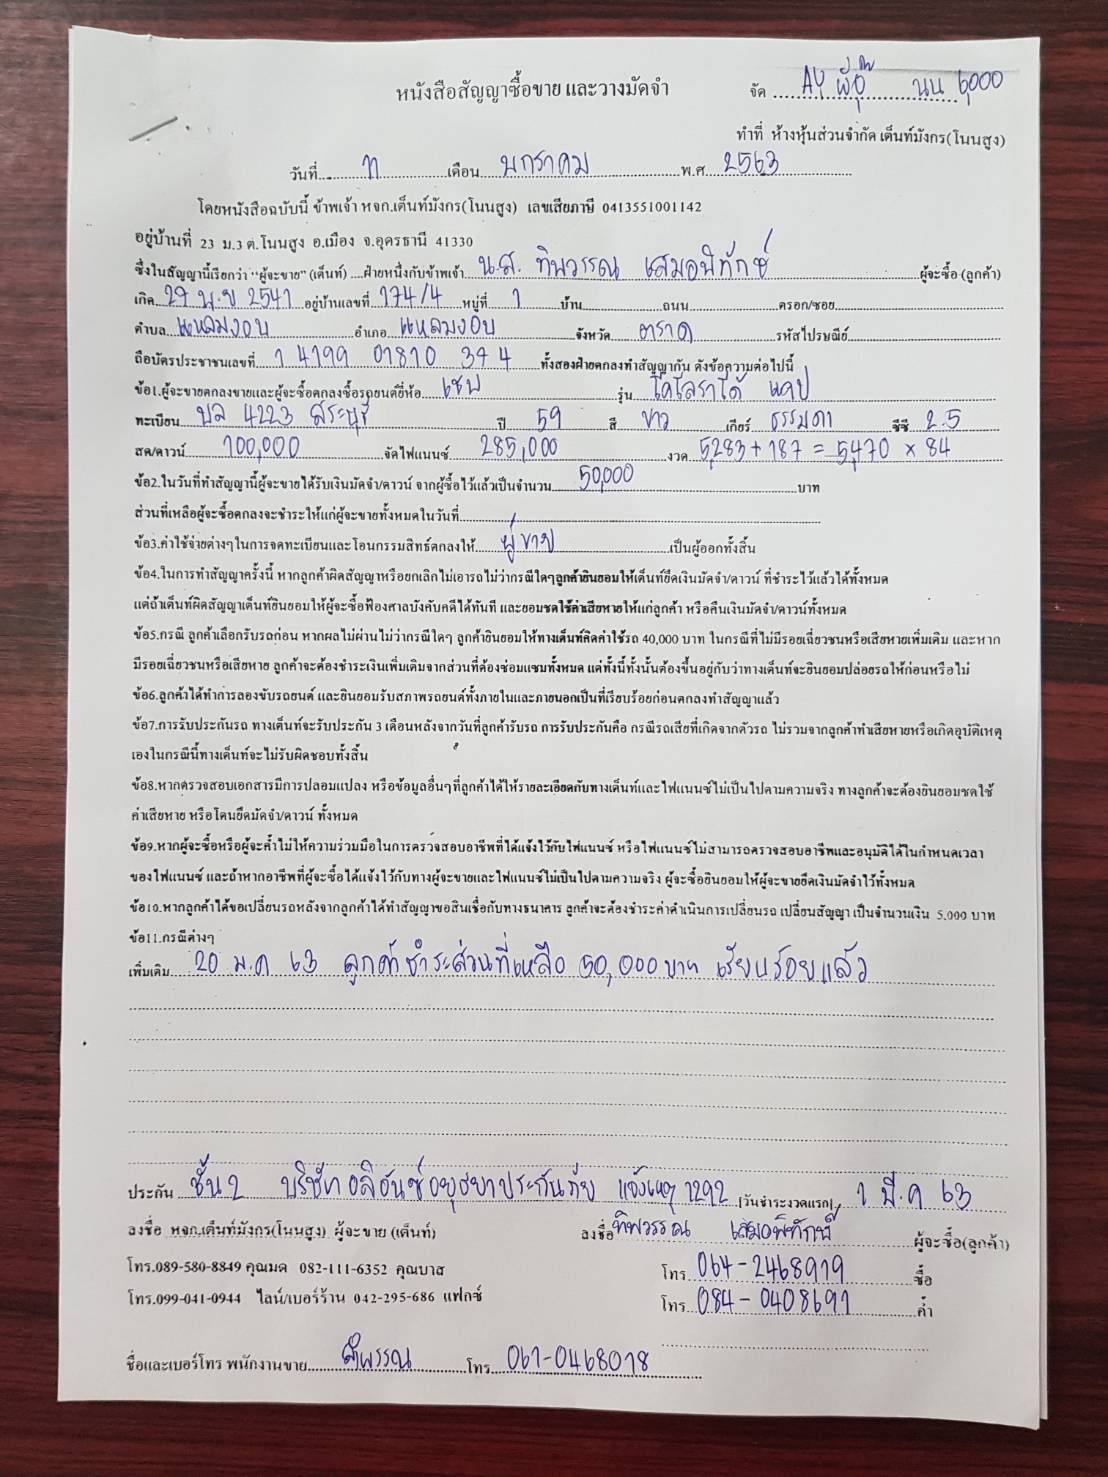 หนังสือสัญญาซื้อขาย และวางมัดจำ
จัด AY นน 6,000
ทำที่ ห้างหุ้นส่วนจำกัด เต็นท์มังกร(โนนสูง)
วันที่ เดือน มกราคม พ.ศ 2563
โดยหนังสือฉบับนี้ ข้าพเจ้า หจก.เต็นท์มังกร(โนนสูง) เลขเสียภาษี 0413551001142
อยู่บ้านที่ 23 ม.3 ต.โนนสูง อ.เมือง จ.อุดรธานี 41330
ซึ่งในสัญญานี้เรียกว่า "ผู้จะขาย" (เต็นท์) ....ฝ่ายหนึ่งกับข้าพเจ้า น.ส. ทิพวรรณ เสมอพิทักษ์ ผู้จะซื้อ (ลูกค้า)
เกิด 29 พ.ย 2541 อยู่บ้านเลขที่ 174/4 หมู่ที่ 1 บ้าน ถนน ตรอก/ซอย
ตำบล แหลมงอบ อำเภอ แหลมงอบ จังหวัด ตราด รหัสไปรษณีย์
ถือบัตรประชาชนเลขที่ 1 4199 01810 39 4 ทั้งสองฝ่ายตกลงทำสัญญากัน ดังข้อความต่อไปนี้
ข้อ1.ผู้จะขายตกลงขายและผู้จะซื้อตกลงซื้อรถยนต์ยี่ห้อ เชฟ รุ่น โคโลราโด้ แคป
ทะเบียน 4223 สระบุรี ปี 59 สี ขาว เกียร์ ธรรมดา ซีซี 2.5
สด/ดาวน์ 100,000 จัดไฟแนนซ์ 285,000 งวด 5,283 + 187 = 5,470 × 84
ข้อ2.ในวันที่ทำสัญญานี้ผู้จะขายได้รับเงินมัดจำ/ดาวน์ จากผู้ซื้อไว้แล้วเป็นจำนวน 50,000 บาท
ส่วนที่เหลือผู้จะซื้อตกลงจะชำระให้แก่ผู้จะขายทั้งหมดในวันที่
ข้อ3.ค่าใช้จ่ายต่างๆในการจดทะเบียนและโอนกรรมสิทธ์ตกลงให้ ผู้ขาย เป็นผู้ออกทั้งสิ้น
ข้อ4.ในการทำสัญญาครั้งนี้ หากลูกค้าผิดสัญญาหรือยกเลิกไม่เอารถไม่ว่ากรณีใดๆลูกค้ายินยอมให้เต็นท์ยึดเงินมัดจำ/ดาวน์ ที่ชำระไว้แล้วได้ทั้งหมด
แต่ถ้าเต็นท์ผิดสัญญาเต็นท์ยินยอมให้ผู้จะซื้อฟ้องศาลบังคับคดีได้ทันที และยอมชดใช้ค่าเสียหายให้แก่ลูกค้า หรือคืนเงินมัดจำ/ดาวน์ทั้งหมด
ข้อ5.กรณี ลูกค้าเลือกรับรถก่อน หากผลไม่ผ่านไม่ว่ากรณีใดๆ ลูกค้ายินยอมให้ทางเต็นท์คิดค่าใช้รถ 40,000 บาท ในกรณีที่ไม่มีรอยเฉี่ยวชนหรือเสียหายเพิ่มเติม และหาก
มีรอยเฉี่ยวชนหรือเสียหาย ลูกค้าจะต้องชำระเงินเพิ่มเติมจากส่วนที่ต้องซ่อมแซมทั้งหมด แต่ทั้งนี้ทั้งนั้นต้องขึ้นอยู่กับว่าทางเต็นท์จะยินยอมปล่อยรถให้ก่อนหรือไม่
ข้อ6.ลูกค้าได้ทำการลองขับรถยนต์ และยินยอมรับสภาพรถยนต์ทั้งภายในและภายนอกเป็นที่เรียบร้อยก่อนตกลงทำสัญญาแล้ว
ข้อ7.การรับประกันรถ ทางเต็นท์จะรับประกัน 3 เดือนหลังจากวันที่ลูกค้ารับรถ การรับประกันคือ กรณีรถเสียที่เกิดจากตัวรถ ไม่รวมจากลูกค้าทำเสียหายหรือเกิดอุบัติเหตุ
เองในกรณีนี้ทางเต็นท์จะไม่รับผิดชอบทั้งสิ้น
ข้อ8.หากตรวจสอบเอกสารมีการปลอมแปลง หรือข้อมูลอื่นๆที่ลูกค้าได้ให้รายละเอียดกับทางเต็นท์และไฟแนนซ์ไม่เป็นไปตามความจริง ทางลูกค้าจะต้องยินยอมชดใช้
ค่าเสียหาย หรือโดนยึดมัดจำ/ดาวน์ ทั้งหมด
ข้อ9.หากผู้จะซื้อหรือผู้จะค้ำไม่ให้ความร่วมมือในการตรวจสอบอาชีพที่ได้แจ้งไว้กับไฟแนนซ์ หรือไฟแนนซ์ไม่สามารถตรวจสอบอาชีพและอนุมัติได้ในกำหนดเวลา
ของไฟแนนซ์ และถ้าหากอาชีพที่ผู้จะซื้อได้แจ้งไว้กับทางผู้จะขายและไฟแนนซ์ไม่เป็นไปตามความจริง ผู้จะซื้อยินยอมให้ผู้จะขายยึดเงินมัดจำไว้ทั้งหมด
ข้อ10.หากลูกค้าได้ขอเปลี่ยนรถหลังจากลูกค้าได้ทำสัญญาขอสินเชื่อกับทางธนาคาร ลูกค้าจะต้องชำระค่าดำเนินการเปลี่ยนรถ เปลี่ยนสัญญา เป็นจำนวนเงิน 5,000 บาท
ข้อ11.กรณีต่างๆ
เพิ่มเติม 20 ม.ค 63 ลูกค้าชำระส่วนที่เหลือ 50,000 บาท เรียบร้อยแล้ว
ประกัน ชั้น 2 บริษัท อลิอันซ์อยุธยาประกันภัย แจ้งเหตุ 1292 (วันชำระงวดแรก) 1 มี.ค 63
ลงชื่อ หจก.เต็นท์มังกร(โนนสูง) ผู้จะขาย (เต็นท์) ลงชื่อ ทิพวรรณ เสมอพิทักษ์ ผู้จะซื้อ(ลูกค้า)
โทร.089-580-8849 คุณมด 082-111-6352 คุณบาส โทร 064-2468919 ซื้อ
โทร.099-041-0944 ไลน์/เบอร์ร้าน 042-295-686 แฟกซ์ โทร 084-0408691 ค้ำ
ชื่อและเบอร์โทร พนักงานขาย โทร 061-0468018